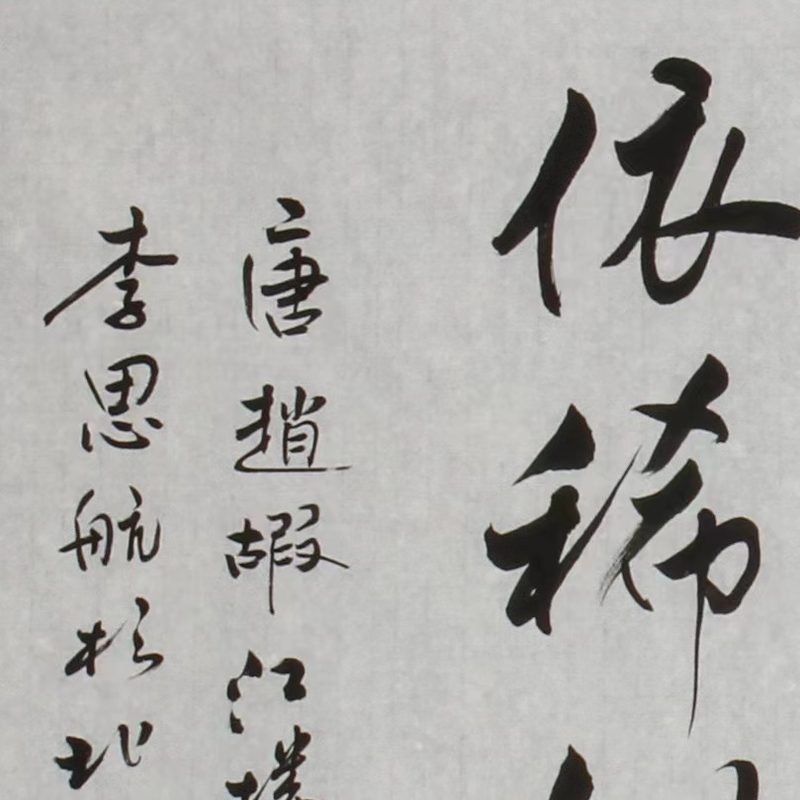 依稀
唐趙嘏江
李思航於北